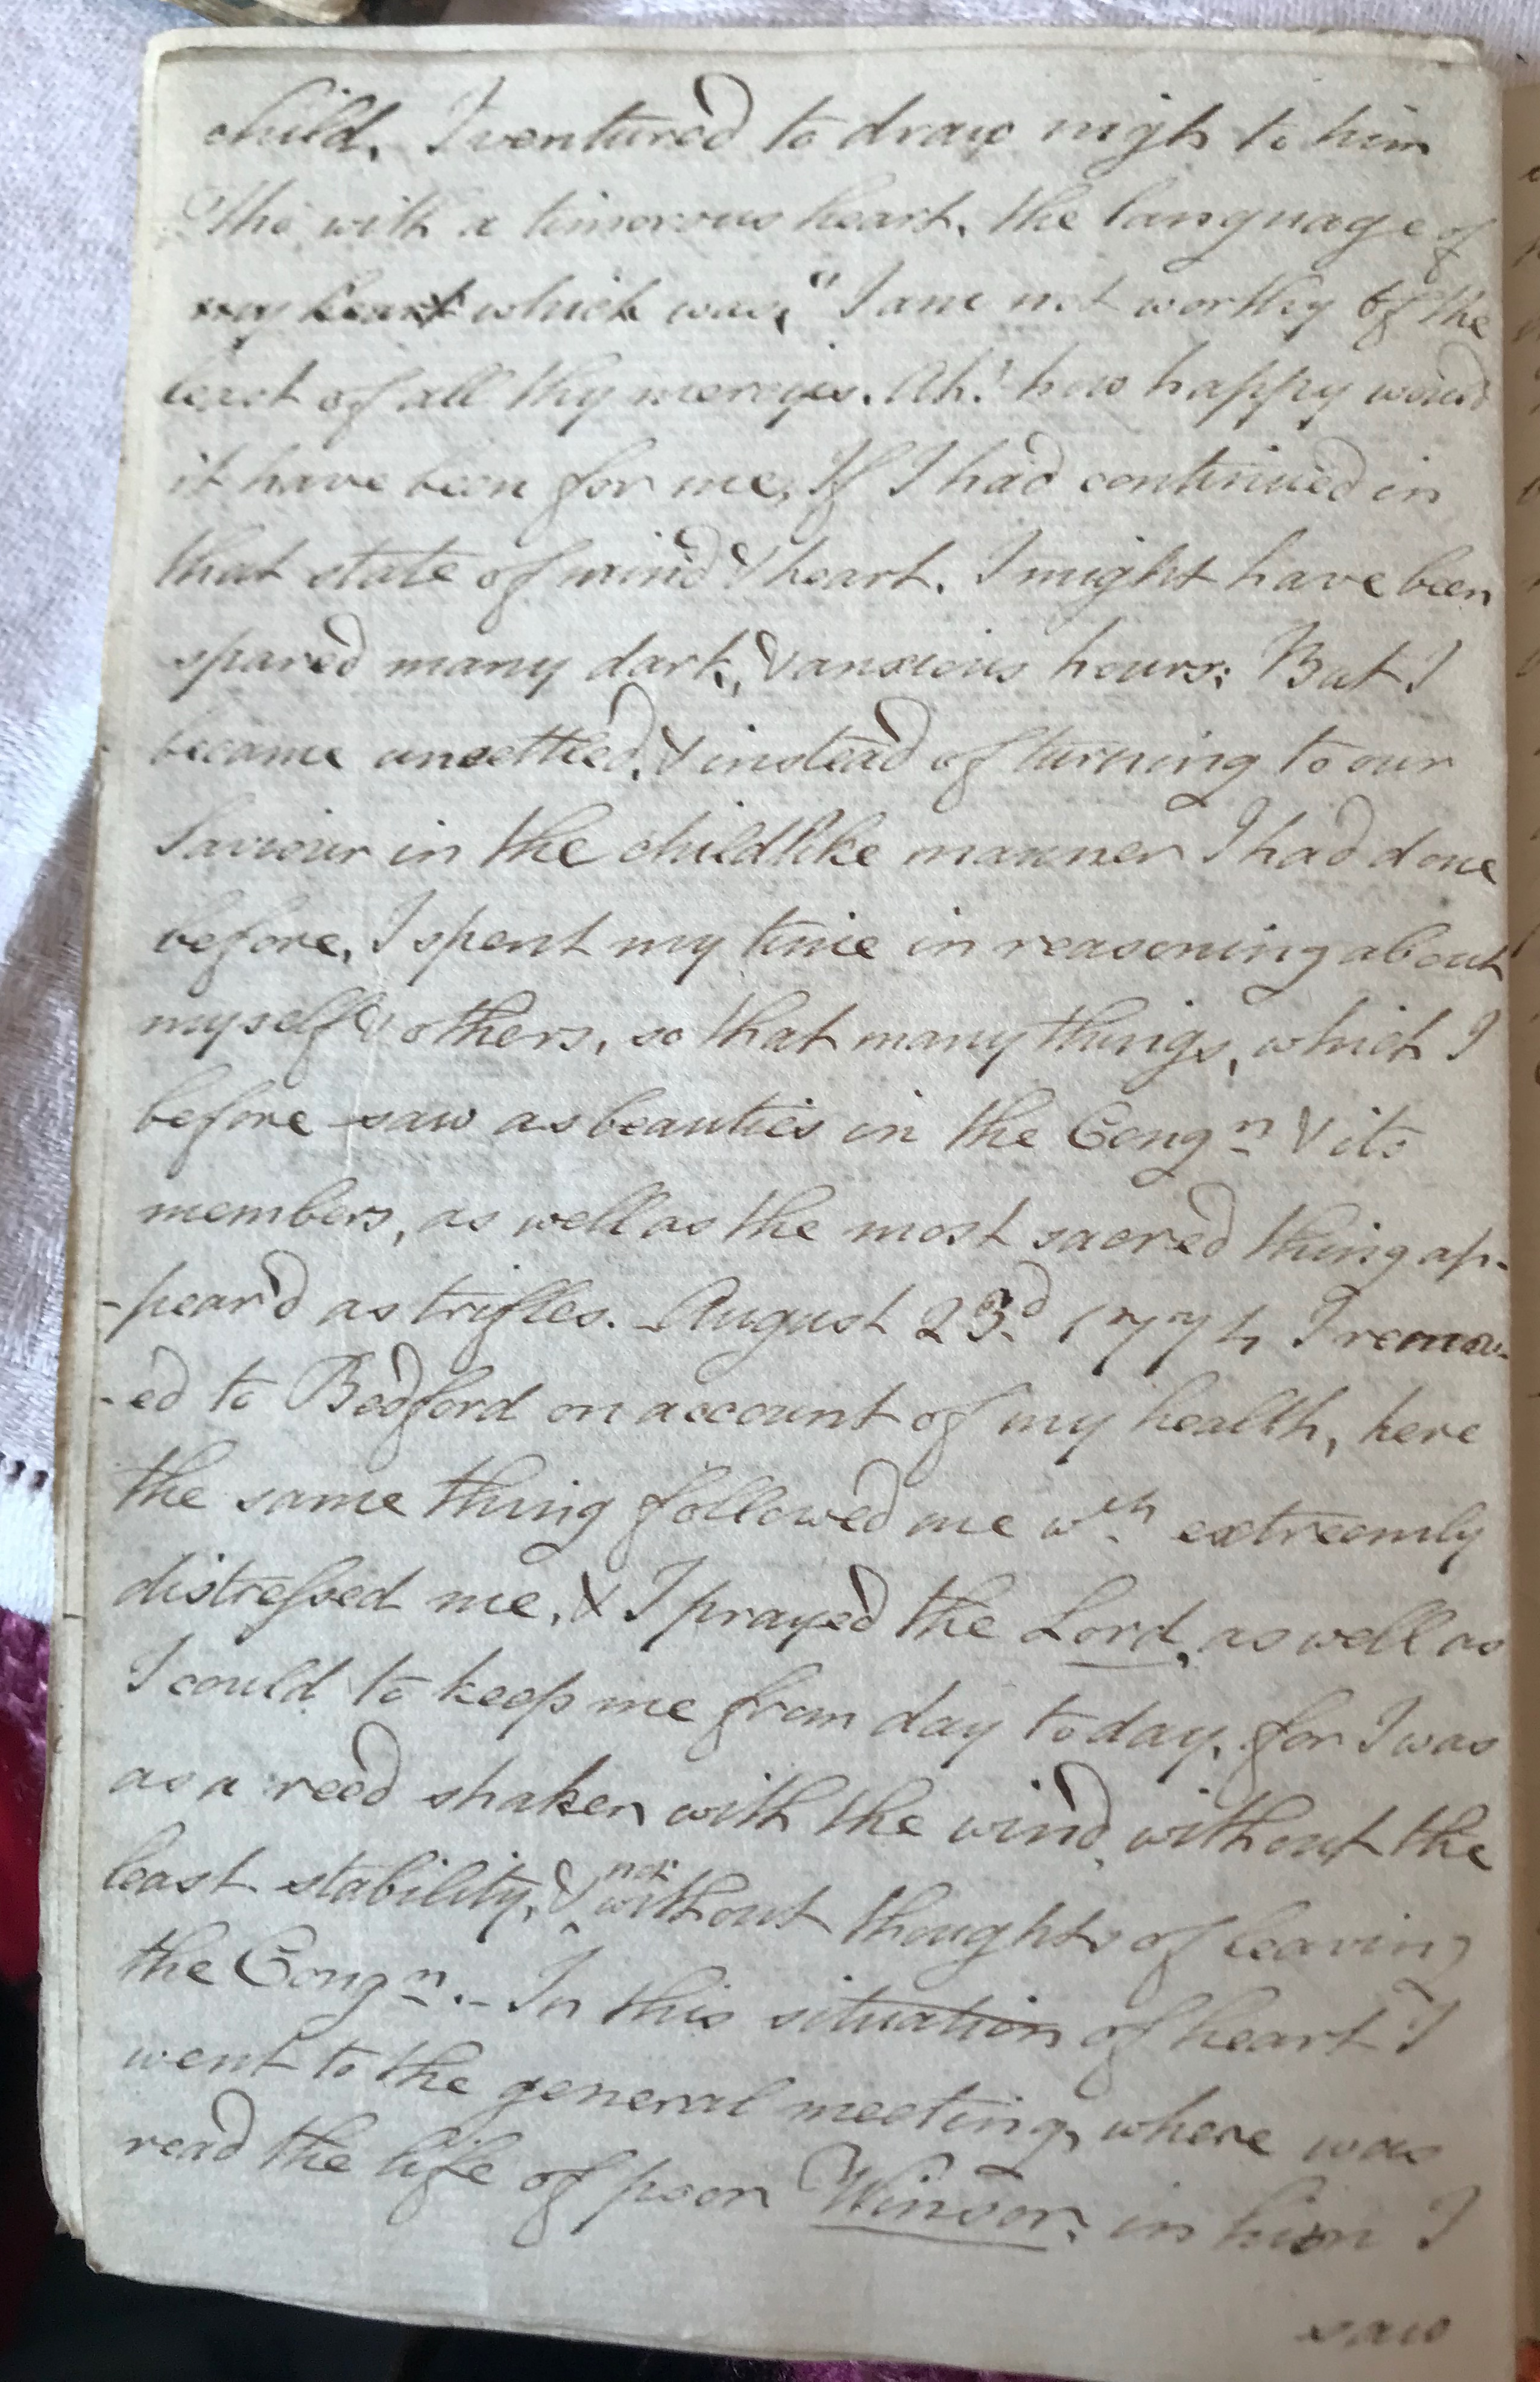 child. I ventured to draw nigh to him
tho' with a timorous heart, the language of
my heart which was, "I am not worthy of the
least of all thy mercys. Ah! how happy would
it have been for me, If I had continued in
that state of mind & heart. I might have been
spared many dark, & anxious hours: But I
became unsettled, & instead of turning to our
Saviour in the childlike manner I had done
before, I spent my time in reasoning about
myself & others, so that many things, which I
before saw as beauties in the Congn & its
members, as well as the most sacred thing ap-
-pear'd as trifles. - August 23d 1774 I remov-
-ed to Bedford on account of my health, here
the same thing followed me wch extreemly
distressed me, & I prayed the Lord, as well as
I could to keep me from day to day, for I was
as a reed shaken with the wind, without the
least stability, & not without thoughts of leaving
the Congn. - In this situation of heart I
went to the general meeting, where was
read the life of poor Winsor, in him I
saw